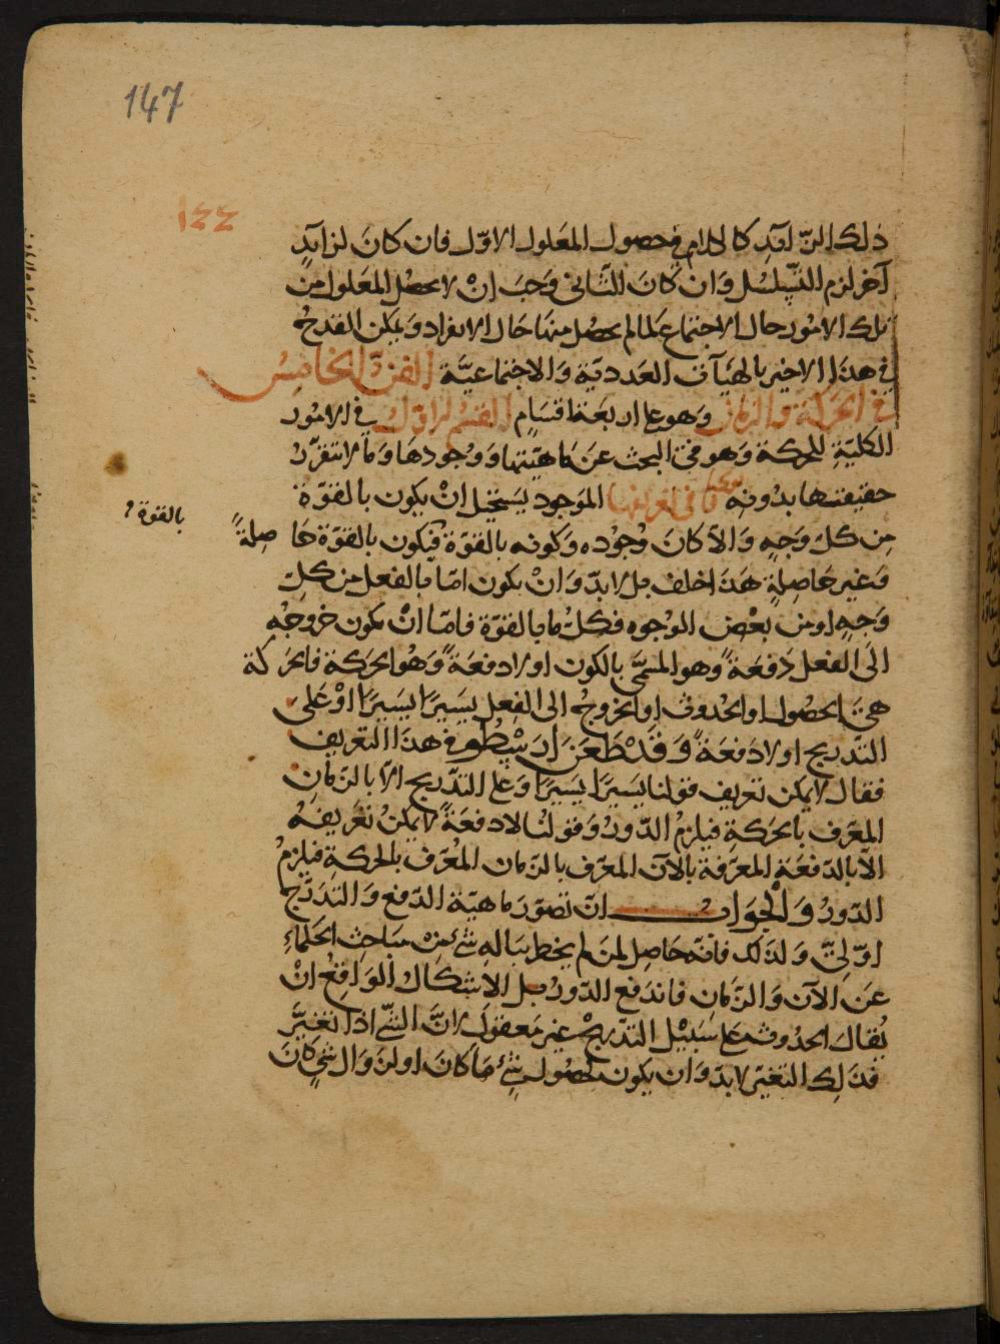 147
١٤٤
ذلك الزائد كالكلام في حصول المعلول الاوّل فان كان لزائدٍ
آخر لزم التسلسل وان كان الثاني وجب انْ لا يحصل المعلول من
تلك الامور حال الاجتماع كما لم يحصل منها حال الانفراد ويمكن القدح
في هذا الاخير بالهيآت العدديّة والاجتماعيّة الفنّ الخامس
في الحركة والزمان وهو على اربعة اقسام القسم الاوّل في الامور
الكليّة للحركة وهو في البحث عن ماهيّتها ووجودها وما لا تتقرّر
حقيقتها بدونه في تعريفها الموجود يستحيل انْ يكون بالقوّة
من كلّ وجهٍ والّا كان وجوده وكونه بالقوّة فيكون بالقوّة حاصلةً
بالقوة
وغير حاصلةٍ هذا خلف بل لا بدّ وانْ يكون امّا بالفعل من كلّ
وجهٍ او من بعض الوجوه فكلّ ما بالقوّة فامّا انْ يكون خروجه
الى الفعل دفعةً وهو المسمّى بالكون او لا دفعةً وهو الحركة فالحركة
هي الحصول او الحدوث او الخروج الى الفعل يسيرًا يسيرًا او على
التدريج او لا دفعةً وقد طعن ارسطو في هذا التعريف
فقال لا يمكن تعريف قولنا يسيرًا يسيرًا وعلى التدريج الّا بالزمان
المعرّف بالحركة فيلزم الدّور وقولنا لا دفعةً لا يمكن تعريفه
الّا بالدّفعة المعرّفة بالآن المعرّف بالزمان المعرّف بالحركة فيلزم
الدّور والجواب انّ تصوّر ماهيّة الدّفع والتدرّج
اوّليّ ولذلك فانّه حاصل لمن لم يخطر بباله شيء من مباحث الحكماء
عن الآن والزمان فاندفع الدّور بل الاشكال الواقع انْ
يقال الحدوث على سبيل التدريج غير معقول لانّ الشيء اذا تغيّر
فذلك التغيّر لا بدّ وان يكون لحصول شيء ما كان او لزوال شيء كان